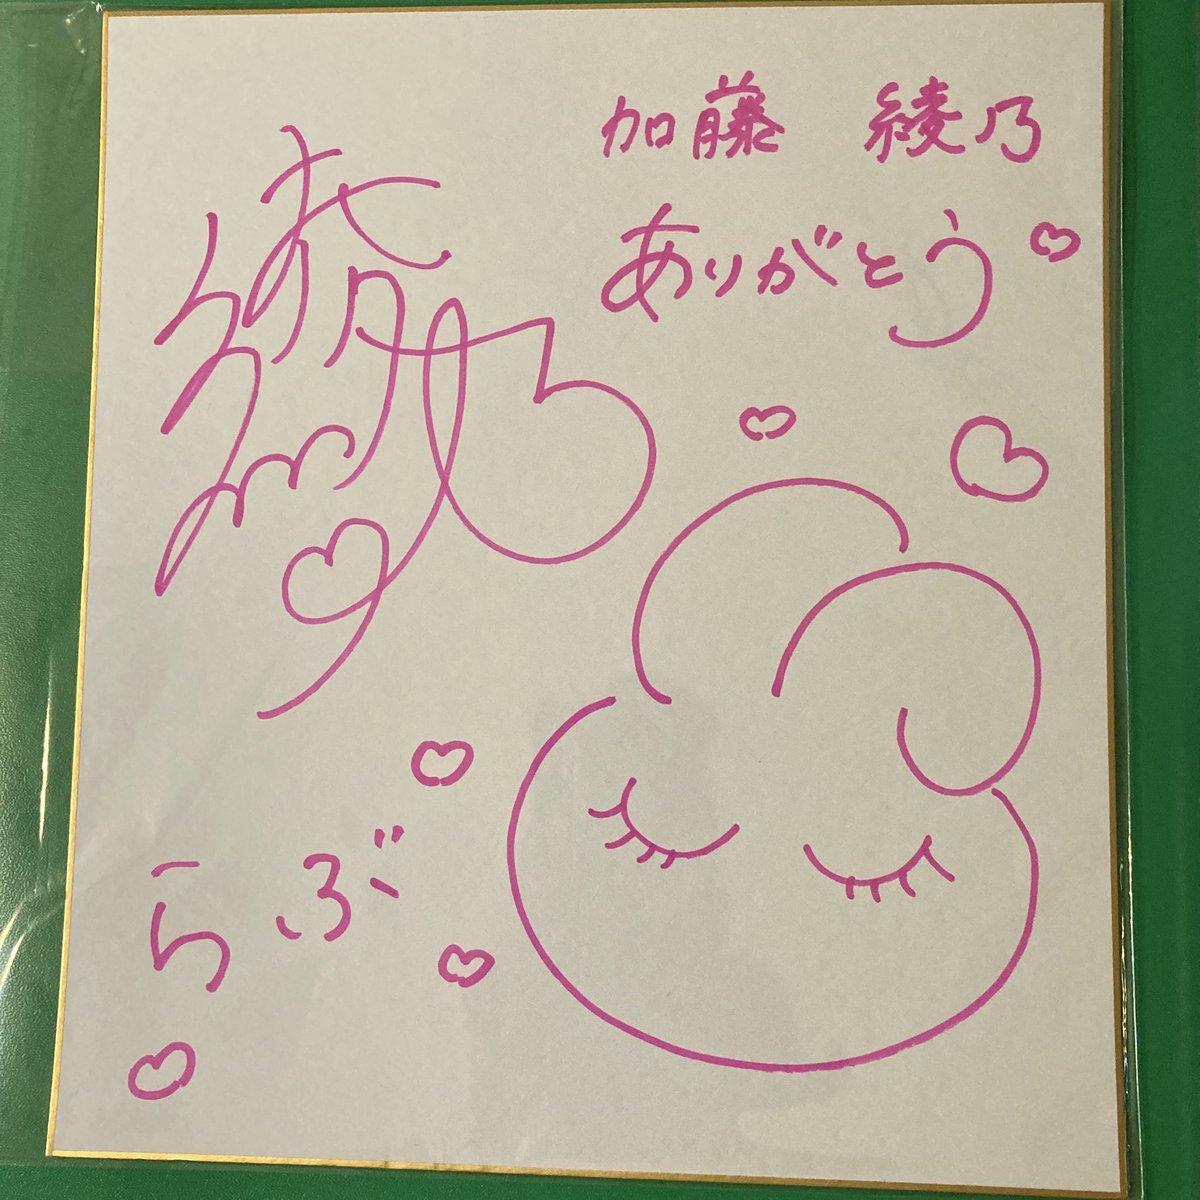 加藤 綾乃
ありがとう
綾乃
らぶ